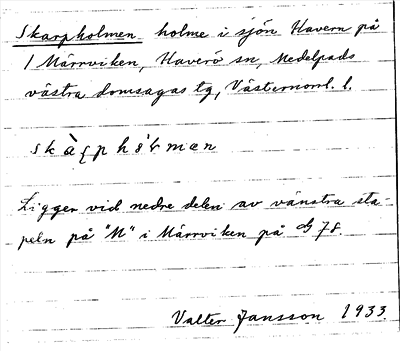 Skarpholmen holme i sjön Havern på
1 Märrviken, Haverö sn, Medelpads
västra domsagas tg, Västernorrl. l.
Ligger vid nedre delen av vänstra sta-
peln på "M" i Märrviken på
Valter Jansson 1933.